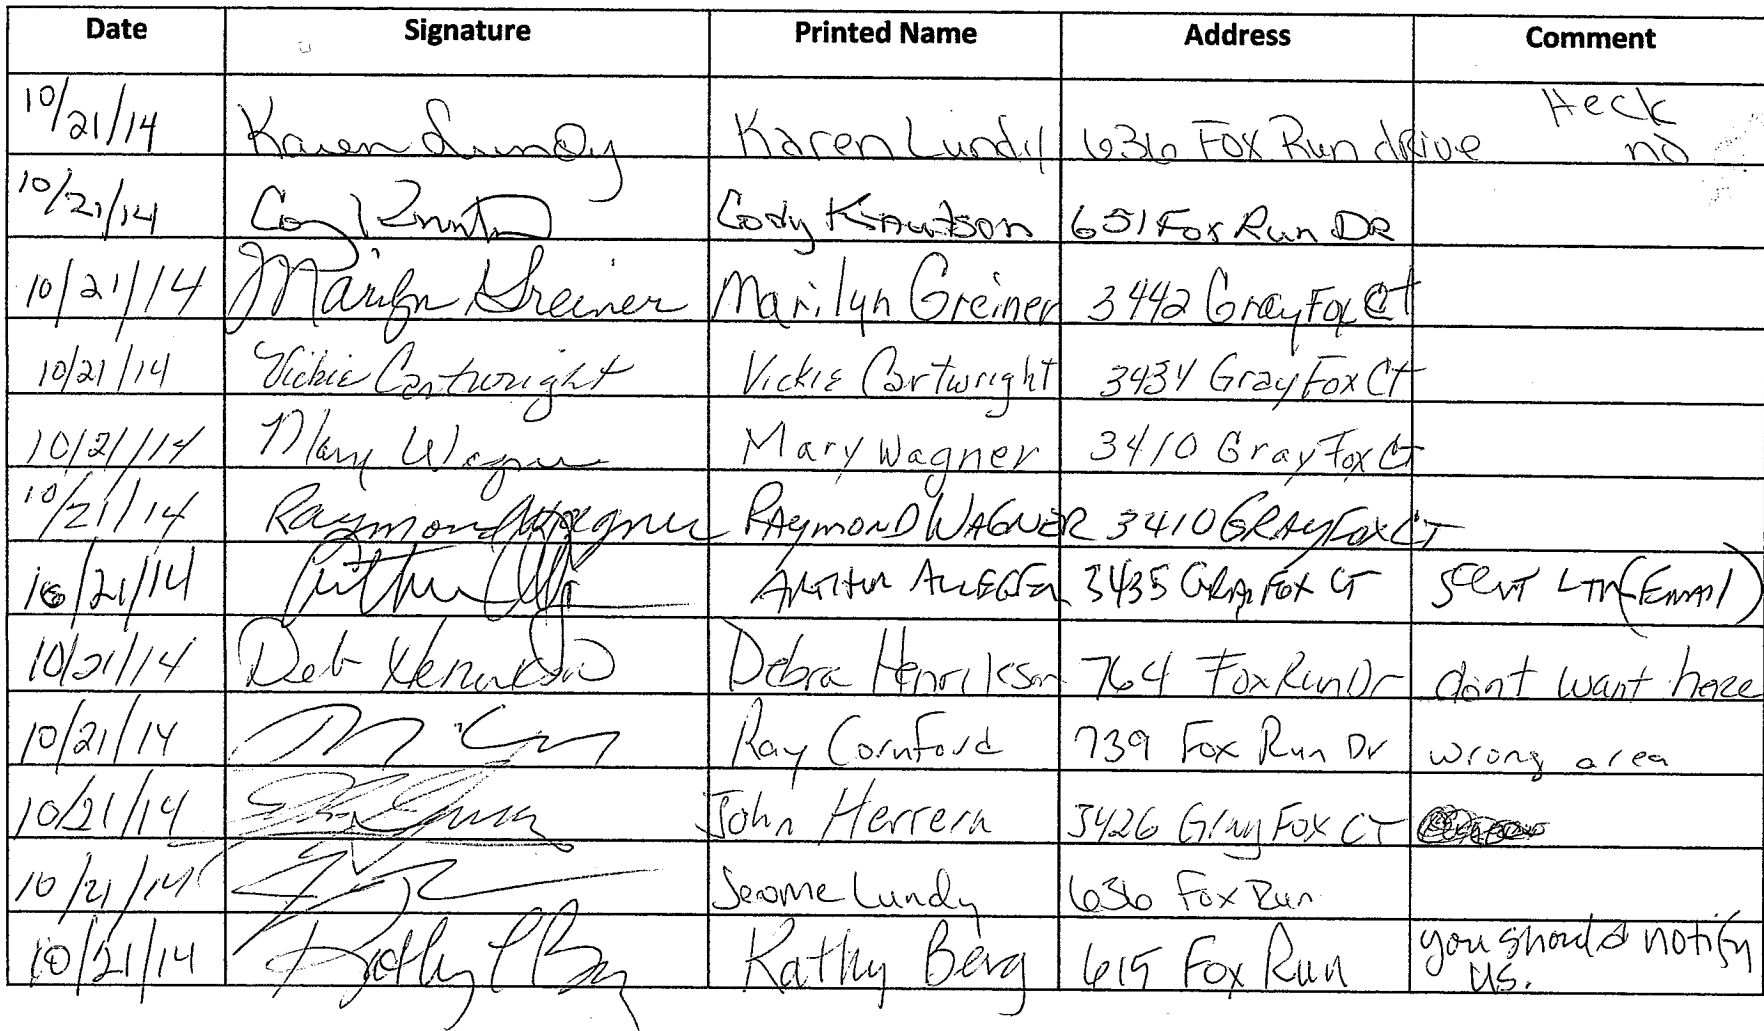 Date Signature Printed Name Address Comment
10/21/14 Karen Lundy Karen Lundy 636 Fox Run drive Heck no
10/21/14 Cody Knutson 651 Fox Run DR
10/21/14 Marilyn Greiner Marilyn Greiner 3442 Gray Fox Ct
10/21/14 Vickie Cartwright Vickie Cartwright 3434 Gray Fox Ct
10/21/14 Mary Wagner Mary Wagner 3410 Gray Fox Ct
10/21/14 Raymond Wagner RAymonD WAGNER 3410 GRAy Fox CT
10/21/14 Arthur 3435 GRAy Fox CT Sent LTR (Email)
10/21/14 Deb Henrikson Debra Henrikson 764 Fox Run Dr dont want here
10/21/14 Ray Cornford 739 Fox Run Dr wrong area
10/21/14 John Herrera 3426 Gray Fox CT
10/21/14 Jerome Lundy 636 Fox Run
10/21/14 Kathy Berg Kathy Berg 615 Fox Run you should notify
us.